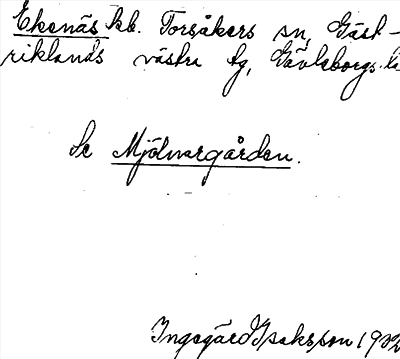 Ekenäs kb. Torsåkers sn, Gäst-
riklands västra tg, Gävleborgs l
Se Mjölnargården.
Ingegärd Isaksson 1932